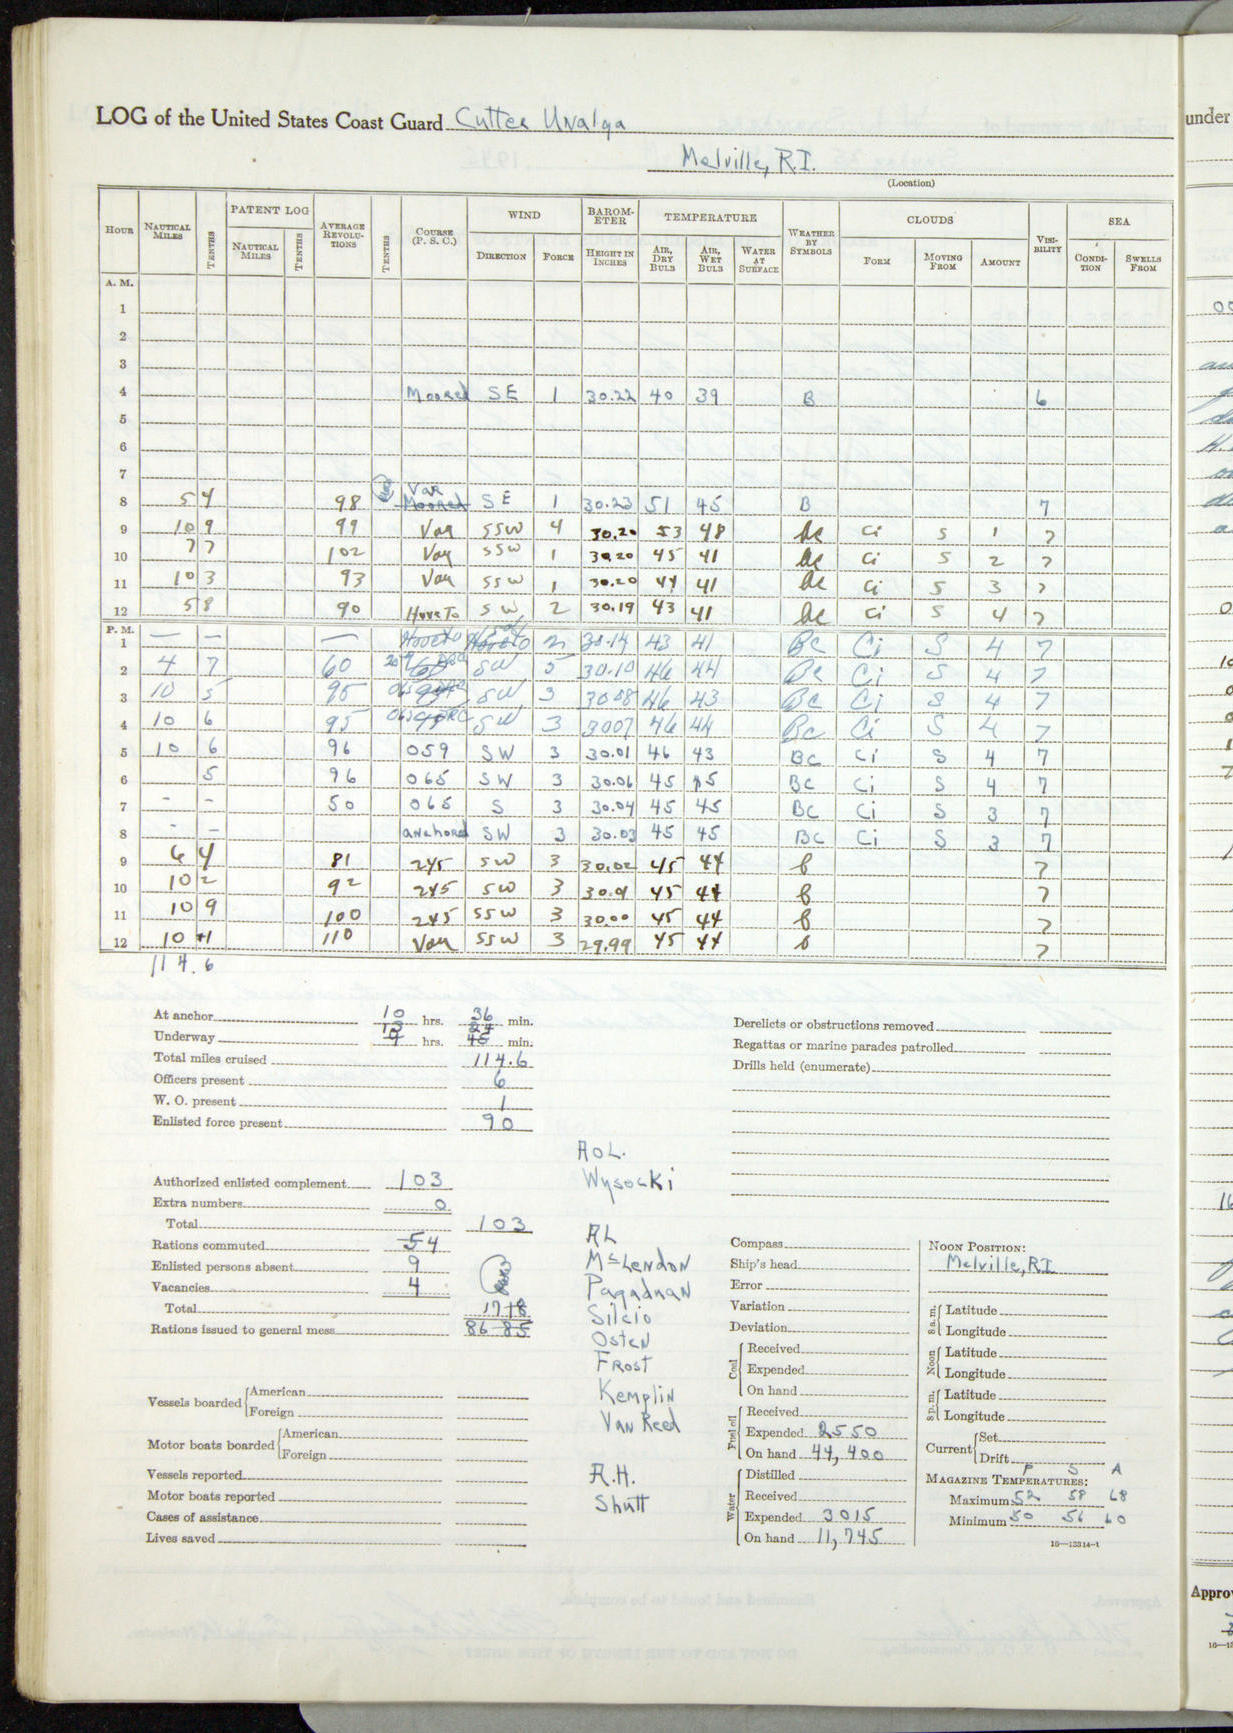 LOG of the United States Coast Guard Cutter Unalga
under
Melville, R.I.
(Location)
HOUR NAUTICAL MILES TENTHS PATENT LOG NAUTICAL MILES TENTHS AVERAGE REVOLUTIONS TENTHS COURSE (P. S. C.) WIND DIRECTION FORCE BAROMETER HEIGHT IN INCHES TEMPERATURE AIR, DRY BULB AIR, WET BULB WATER AT SURFACE WEATHER BY SYMBOLS CLOUDS FORM MOVING FROM AMOUNT VISIBILITY SEA CONDITION SWELLS FROM
A. M.
1
2
3
4 Moored SE 1 30.22 40 39 B 6
5
6
7
8 5 4 98 Var Moored SE 1 30.23 51 45 B 7
9 10 9 99 Var SSW 4 30.20 53 48 bc Ci S 1 7
10 7 7 102 Var SSW 1 30.20 45 41 bc Ci S 2 7
11 10 3 93 Var SSW 1 30.20 44 41 bc Ci S 3 7
12 5 8 90 Hove To SW 2 30.19 43 41 bc Ci S 4 7
P. M.
1 — — — Hove to 2 30.14 43 41 Bc Ci S 4 7
2 4 7 60 SW 5 30.10 46 44 Bc Ci S 4 7
3 10 5 95 SW 3 30.08 46 43 Bc Ci S 4 7
4 10 6 95 SW 3 3007 46 44 Bc Ci S 4 7
5 10 6 96 059 SW 3 30.01 46 43 BC Ci S 4 7
6 5 96 065 SW 3 30.06 45 BC Ci S 4 7
7 - - 50 065 S 3 30.04 45 45 BC Ci S 3 7
8 - - anchored SW 3 30.03 45 45 BC Ci S 3 7
9 6 4 81 245 SW 3 30.02 45 44 b 7
10 10 2 92 245 SW 3 30.01 45 44 b 7
11 10 9 100 245 SSW 3 30.00 45 44 b 7
12 10 11 110 Var SSW 3 29.99 45 44 b 7
114.6
At anchor 10 hrs. 36 min.
Underway 13 9 hrs. 24 45 min.
Total miles cruised 114.6
Officers present 6
W. O. present 1
Enlisted force present 90
Authorized enlisted complement 103
Extra numbers 0
Total 103
Rations commuted 5 4
Enlisted persons absent 9
Vacancies 4
Total 17 18
Rations issued to general mess 86 85
Vessels boarded American
Foreign
Motor boats boarded American
Foreign
Vessels reported
Motor boats reported
Cases of assistance
Lives saved
AOL.
Wysocki
AL
McLendon
Pagaduan
Silcio
Osten
Frost
Kemplin
Van Reed
A.H.
Shutt
Derelicts or obstructions removed
Regattas or marine parades patrolled
Drills held (enumerate)
Compass
Ship's head
Error
Variation
Deviation
Coal Received
Expended
On hand
Fuel oil Received
Expended 2550
On hand 44,400
Water Distilled
Received
Expended 3015
On hand 11,745
NOON POSITION:
Melville, RI
8 a. m. Latitude
Longitude
Noon Latitude
Longitude
8 p. m. Latitude
Longitude
Current Set
Drift
P S A
MAGAZINE TEMPERATURES:
Maximum 52 58 68
Minimum 50 56 60
16—13314-1
Approv